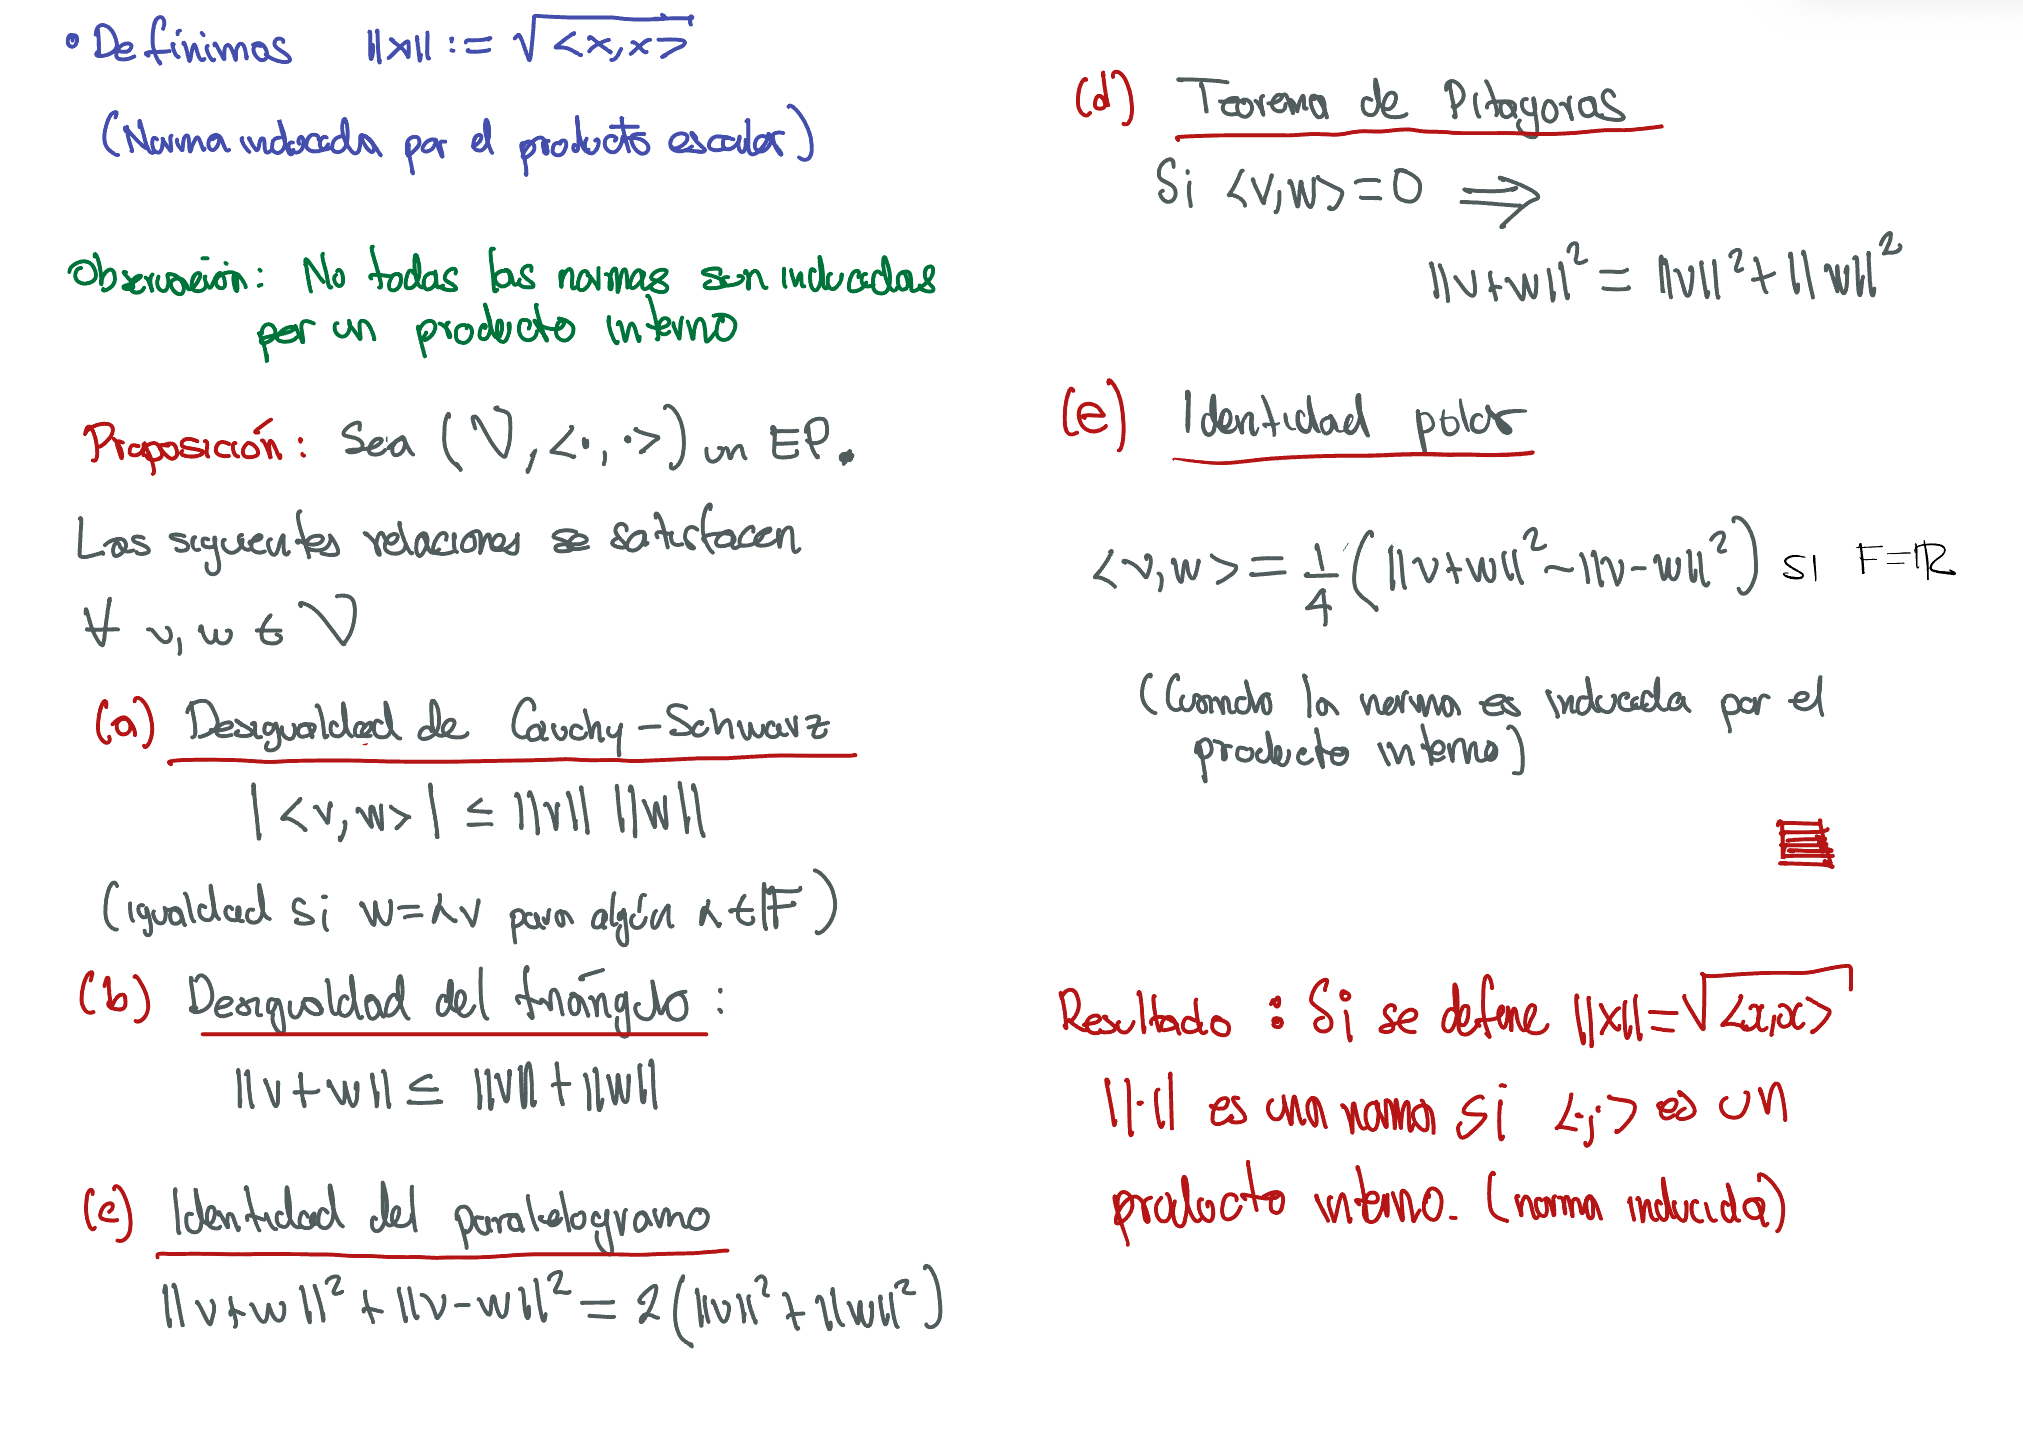 • Definimos ||x|| := √<x,x>
(Norma inducida por el producto escalar)
Observación: No todas las normas son inducidas
por un producto interno
Proposición: Sea (V, <·,·>) un EP.
Las siguientes relaciones se satisfacen
∀ v, w ∈ V
(a) Desigualdad de Cauchy-Schwarz
|<v,w>| ≤ ||v|| ||w||
(igualdad si w=αv para algún α∈F)
(b) Desigualdad del triángulo:
||v+w|| ≤ ||v|| + ||w||
(c) Identidad del paralelogramo
||v+w||² + ||v-w||² = 2(||v||² + ||w||²)
(d) Teorema de Pitagoras
Si <v,w> = 0 ⟹
||v+w||² = ||v||² + ||w||²
(e) Identidad polar
<v,w> = 1/4 (||v+w||² - ||v-w||²) si F=ℝ
(Cuando la norma es inducida por el
producto interno)
Resultado: Si se define ||x|| = √<x,x>
||·|| es una norma si <·,·> es un
producto interno. (norma inducida)